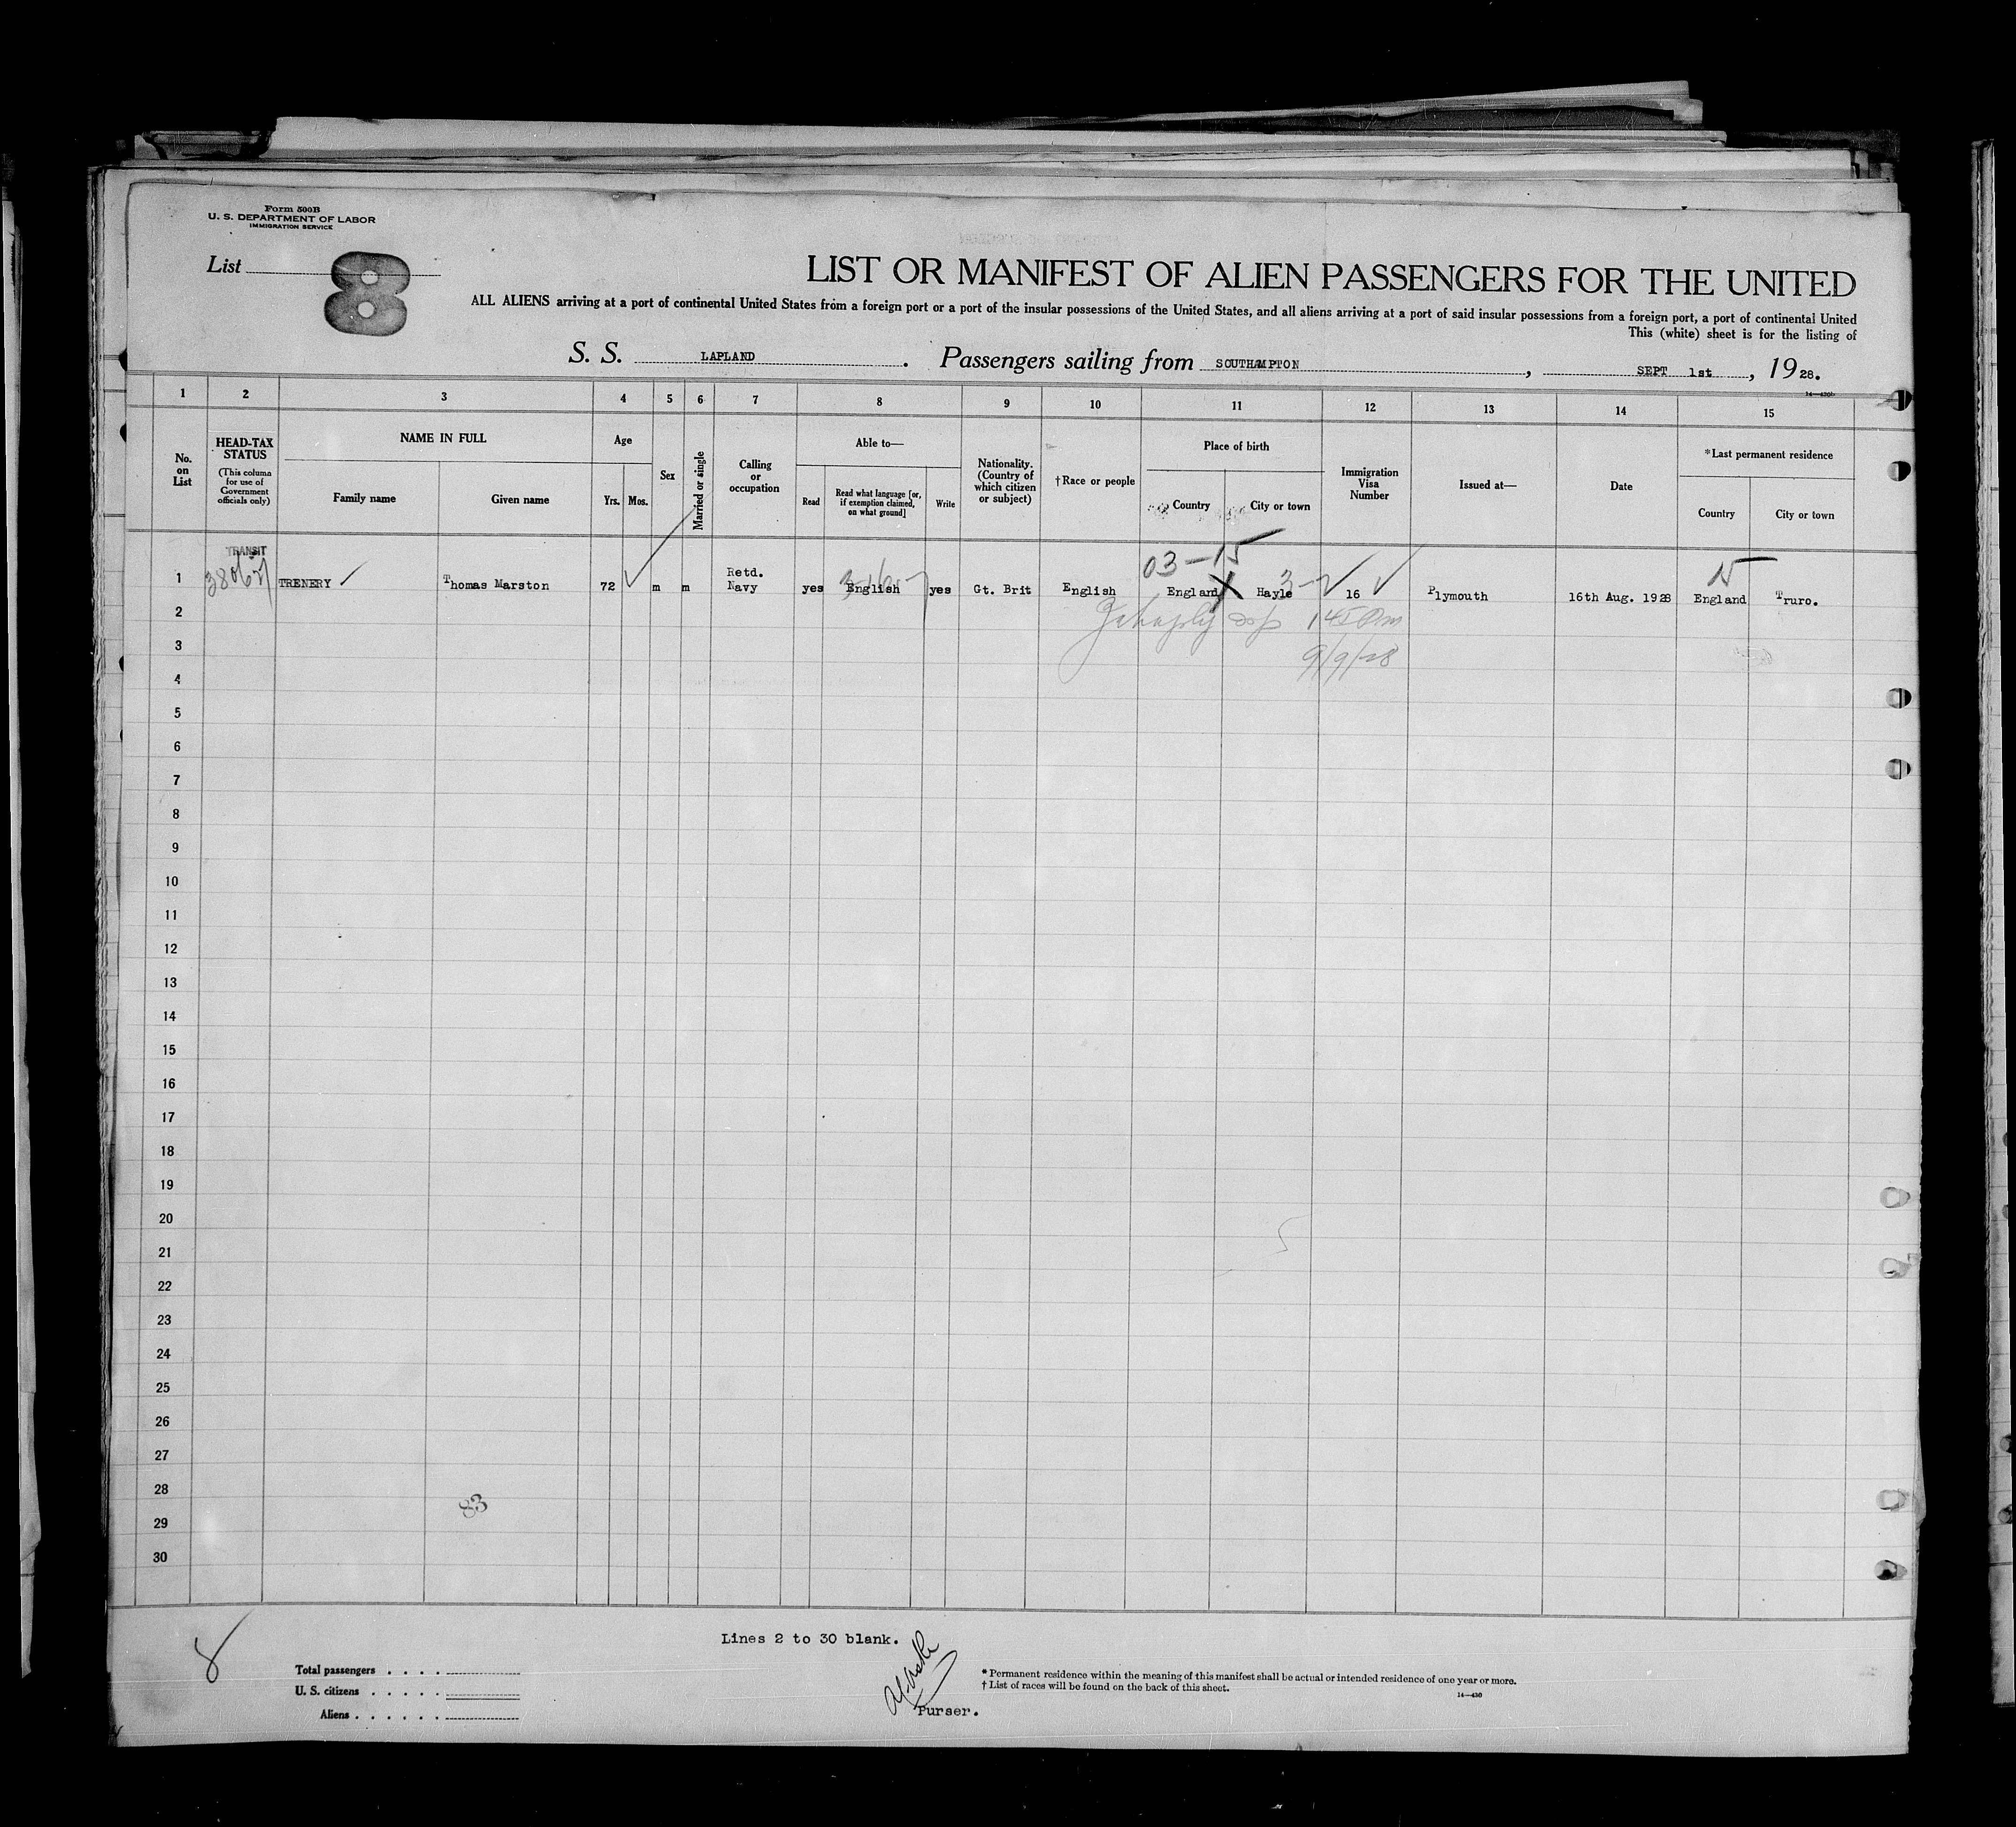 Form 500B
U. S. DEPARTMENT OF LABOR
IMMIGRATION SERVICE
List 8
LIST OR MANIFEST OF ALIEN PASSENGERS FOR THE UNITED
ALL ALIENS arriving at a port of continental United States from a foreign port or a port of the insular possessions of the United States, and all aliens arriving at a port of said insular possessions from a foreign port, a port of continental United
This (white) sheet is for the listing of
S. S. LAPLAND. Passengers sailing from SOUTHAMPTON, SEPT 1st, 1928.
1 2 3 4 5 6 7 8 9 10 11 12 13 14 15
No. on List
HEAD-TAX STATUS
(This column for use of Government officials only)
NAME IN FULL
Family name
Given name
Age
Yrs.
Mos.
Sex
Married or single
Calling or occupation
Able to—
Read
Read what language [or, if exemption claimed, on what ground]
Write
Nationality. (Country of which citizen or subject)
†Race or people
Place of birth
Country
City or town
Immigration Visa Number
Issued at—
Date
*Last permanent residence
Country
City or town
TRANSIT
03-15
15
1 TRENERY Thomas Marston 72 m m Retd. Navy yes English yes Gt. Brit English England Hayle 16 Plymouth 16th Aug. 1928 England Truro.
2
3
9/9/28
4
5
6
7
8
9
10
11
12
13
14
15
16
17
18
19
20
21
22
23
24
25
26
27
28
83
29
30
8
Lines 2 to 30 blank.
Total passengers . . . .
U. S. citizens . . . . .
Aliens . . . . . .
Purser.
* Permanent residence within the meaning of this manifest shall be actual or intended residence of one year or more.
† List of races will be found on the back of this sheet.
14—430